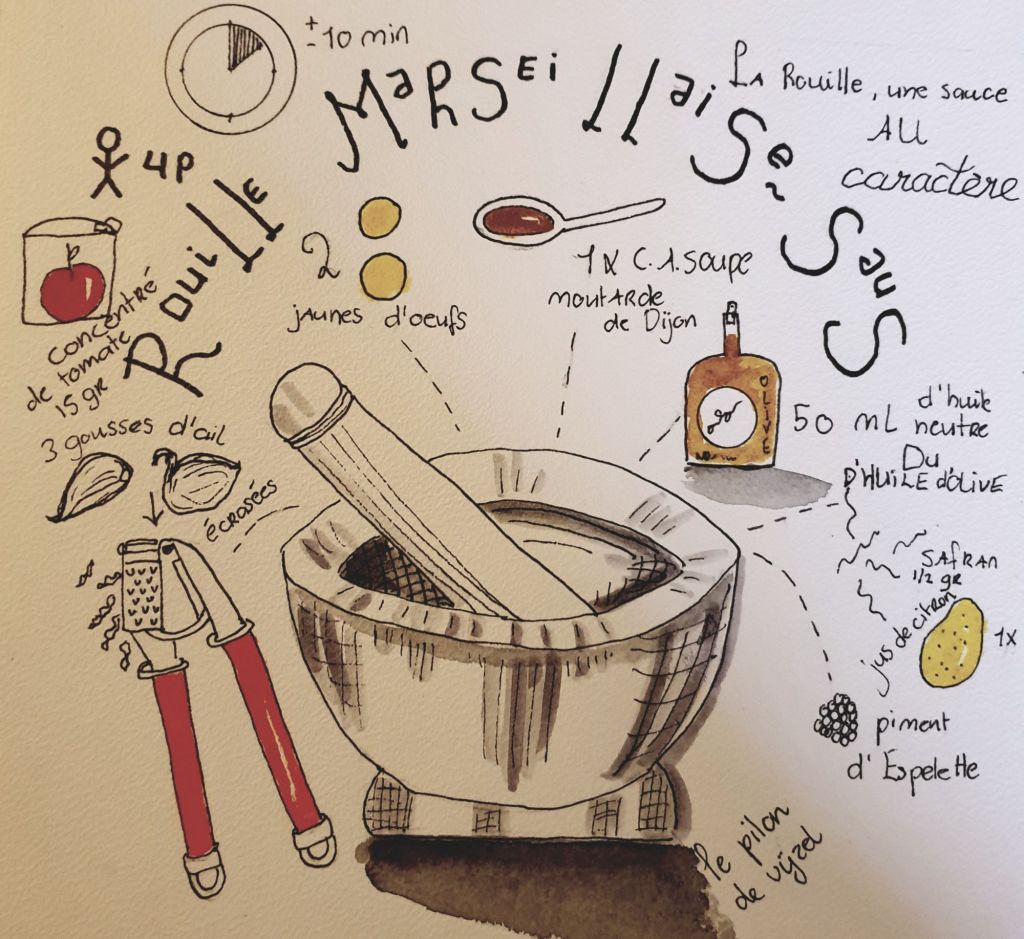 +- 10 min
4P
Rouille Marseillaise Saus
La Rouille, une sauce
AU
caractère
concentré
de tomate
15 gr
2
jaunes d'oeufs
1 x C.A.Soupe
moutarde
de Dijon
OLIVE
50 mL d'huile
neutre
Du
D'HUILE d'OLIVE
3 gousses d'ail
écrasées
SAfRAN
1/2 gr
jus de citron
1x
piment
d'Espelette
le pilon
de vijzel